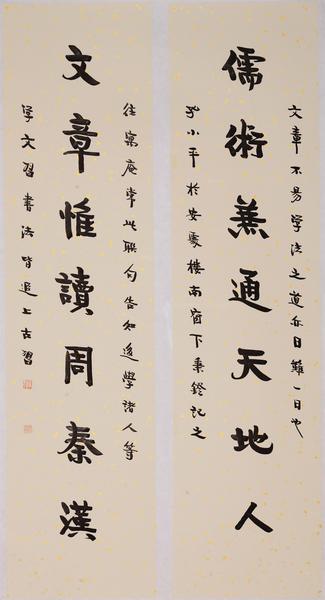 文章不易学法之道亦日難一日也
儒術兼通天地人
小平於安處樓南窗下秉鐙記之
庵常此联句告知後學諸人等
文章惟讀周秦漢
学文習書法皆追上古習